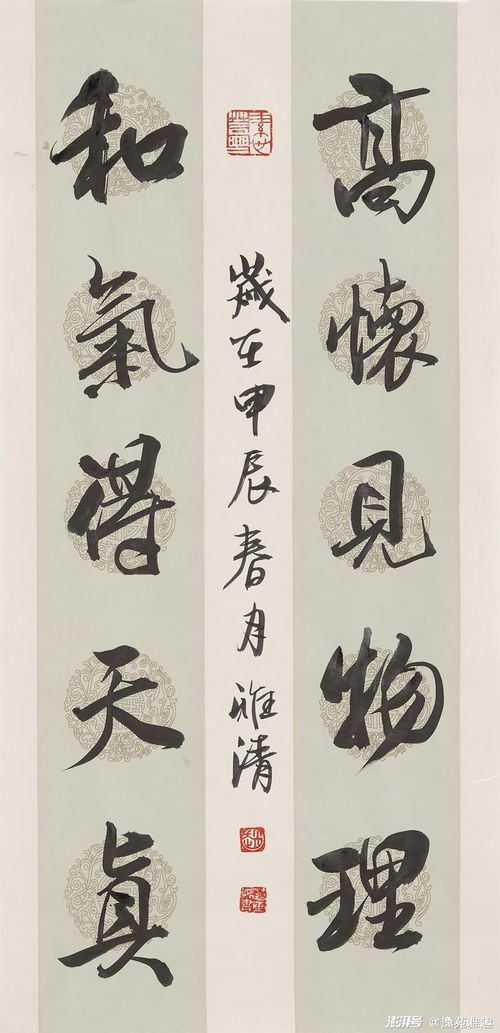 高懷見物理
歲在甲辰春月雅清
和氣得天真
澎湃号 @逸苑雅忠